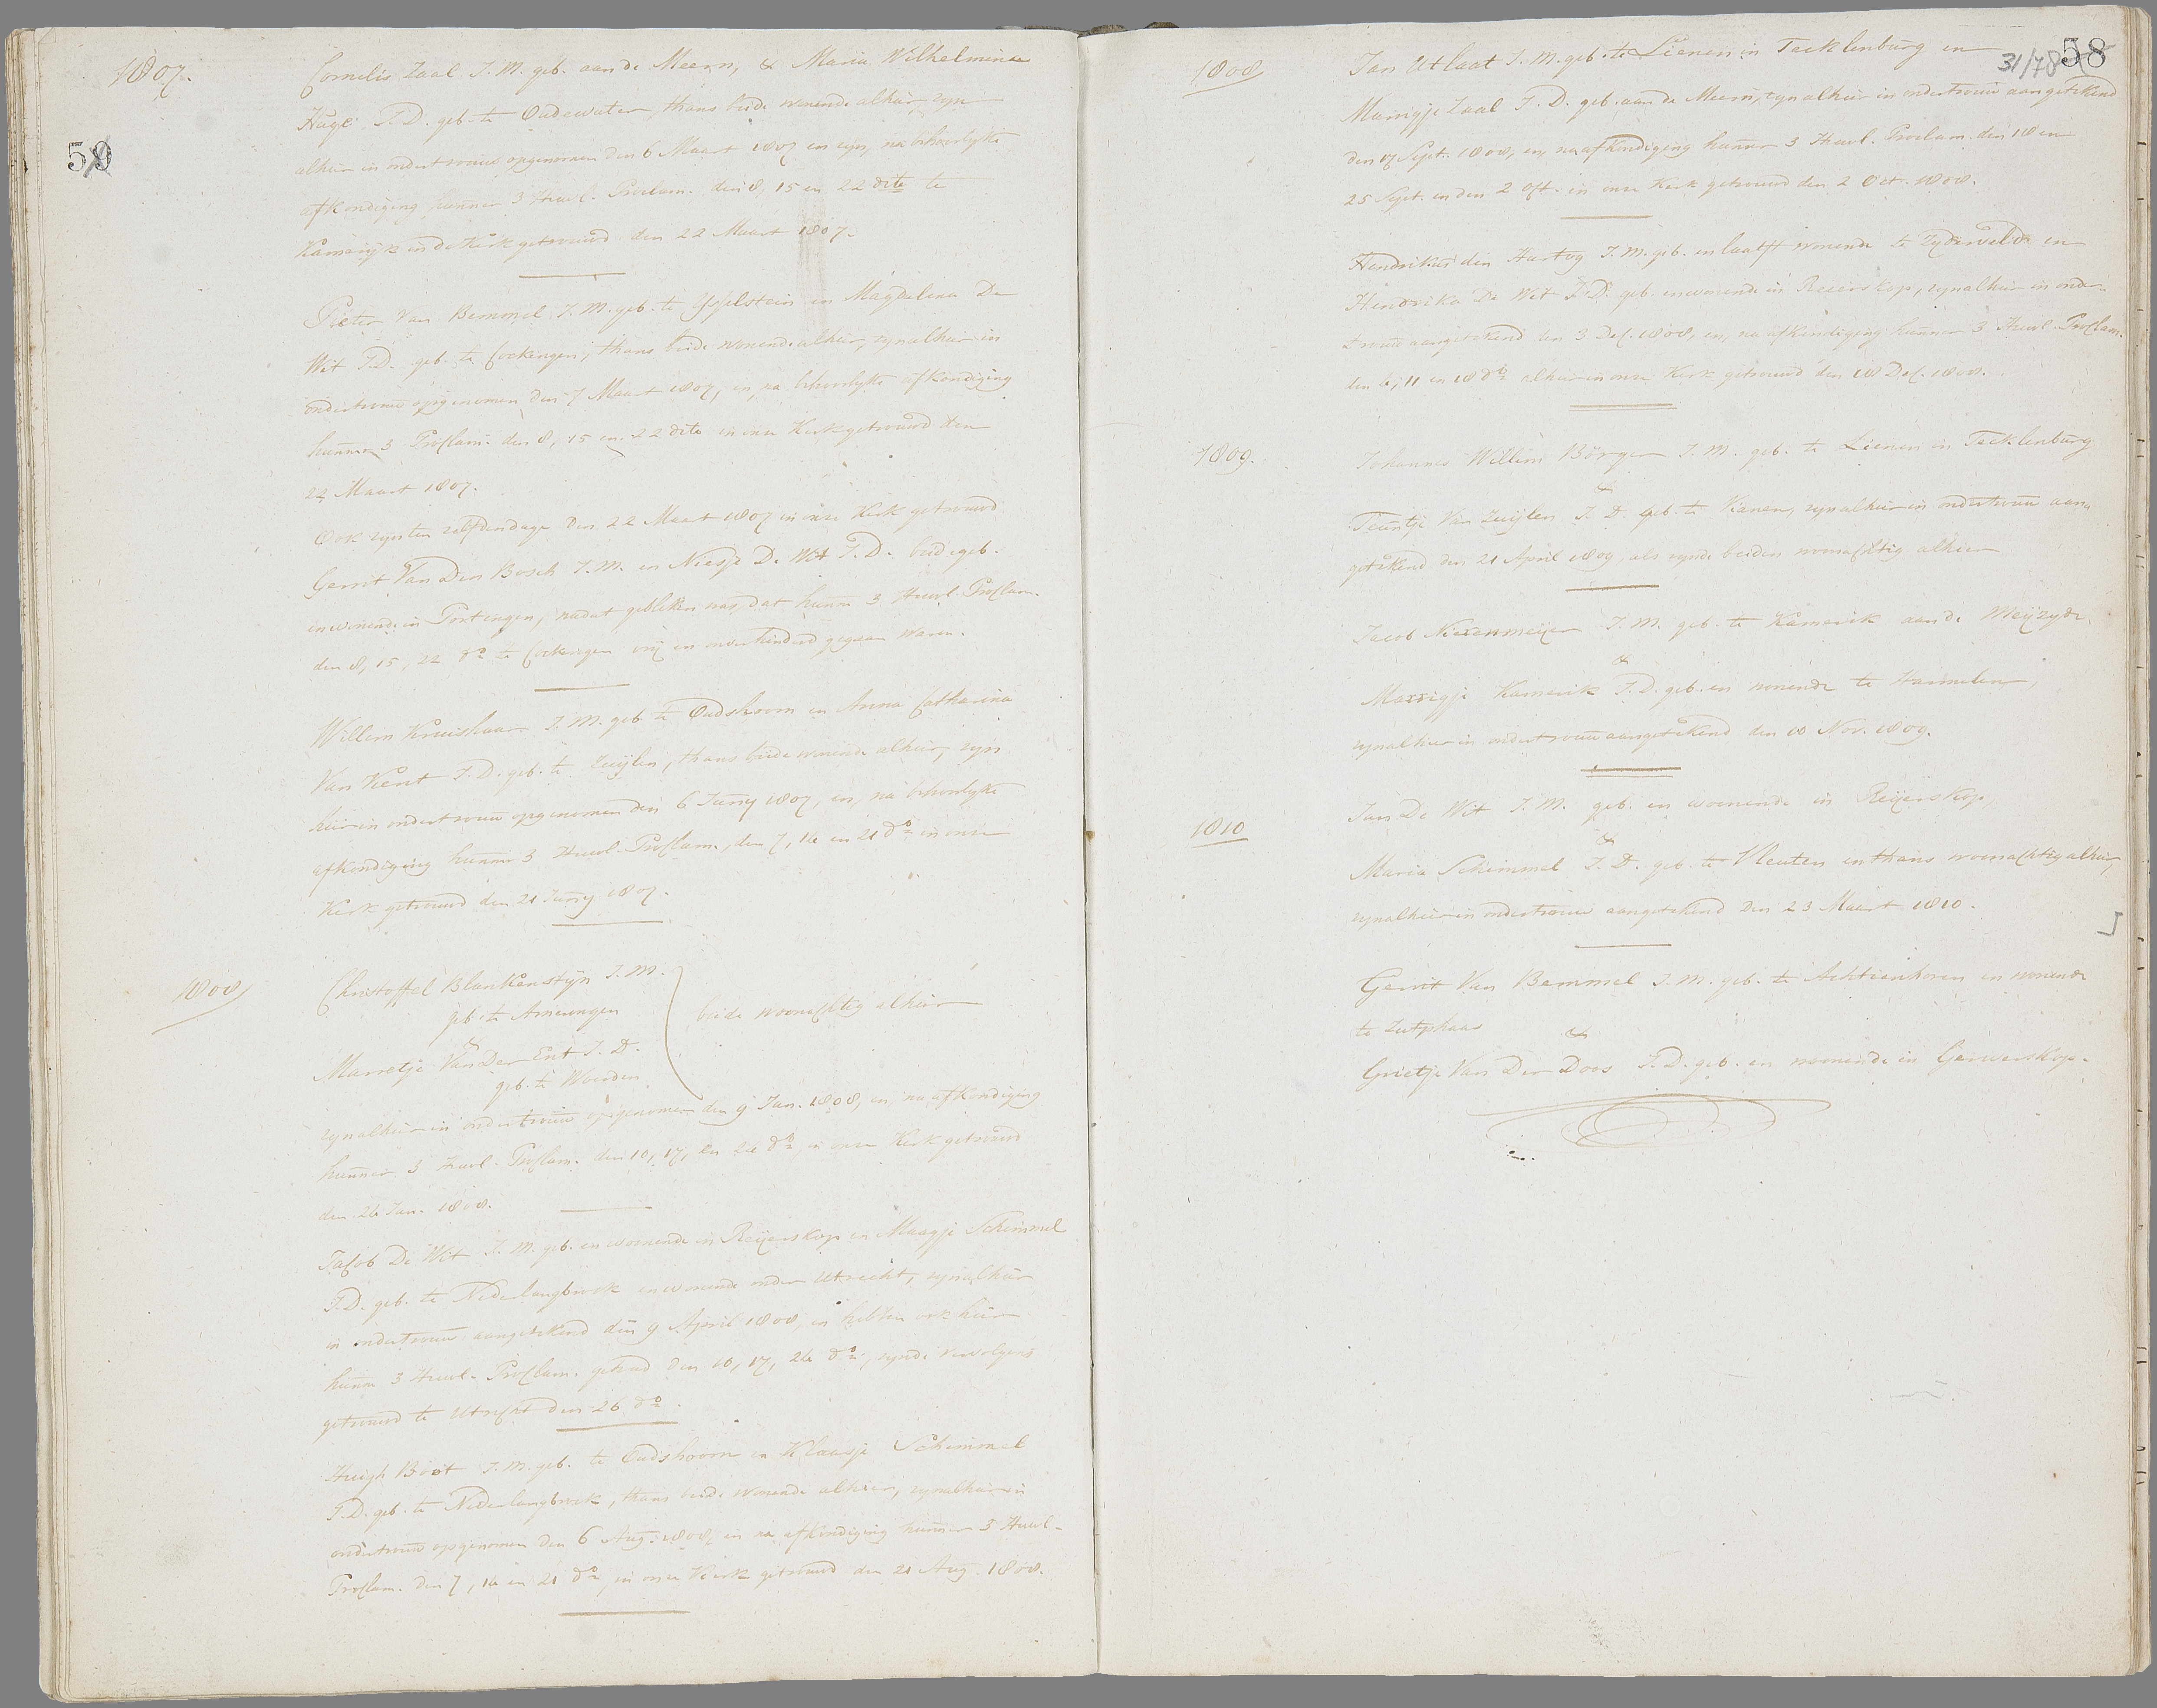 1807.
59
Cornelis Zaal J.M. geb. aan de Meern, & Maria Wilhelmina
Hage J.D. geb. te Oudewater, thans beide wonende alhier, zyn
alhier in ondertrouw opgenomen den 6 Maart 1807 en zyn, na behoorlyke
afkondiging hunner 3 Huwl. Proclam. den 8, 15 en 22 dito te
Kamerijk in de Kerk getrouwd den 22 Maart 1807.
Pieter Van Bemmel J.M. geb. te Ysselstein en Magdalena De
Wit J.D. geb. te Cockengen, thans beide wonende alhier, zyn alhier in
ondertrouw opgenomen den 7 Maart 1807, en, na behoorlyke afkondiging
hunner 3 Proclam. den 8, 15 en 22 dito in onze Kerk getrouwd den
22 Maart 1807.
Ook zyn ten zelfden dage den 22 Maart 1807 in onze Kerk getrouwd
Gerrit Van Den Bosch J.M. en Niesje De Wit J.D. beide geb.
en wonende in Portengen, nadat gebleken was, dat hunne 3 Huwl. Proclam.
den 8, 15, 22 do te Cockengen vrij en onverhinderd gegaan waren.
Willem Kruishaar J.M. geb. te Oudshoorn en Anna Catharina
Van Kent J.D. geb. te Zuijlen, thans beide wonende alhier, zyn
hier in ondertrouw opgenomen den 6 Junij 1807, en, na behoorlyke
afkondiging hunner 3 Huwl. Proclam., den 7, 14 en 21 do in onze
Kerk getrouwd den 21 Junij 1807.
1808
Christoffel Blankenstijn J.M.
geb. te Amerongen
beide woonachtig alhier
&
Marretje Van Der Ent J.D.
geb. te Woerden
zyn alhier in ondertrouw opgenomen den 9 Jan. 1808, en, na afkondiging
hunner 3 Huwl. Proclam. den 10, 17, en 24 do, in onze Kerk getrouwd
den 24 Jan. 1808.
Jacob De Wit J.M. geb. en wonende in Reijerskop en Maagje Schimmel
J.D. geb. te Nederlangbroek en wonende onder Utrecht, zyn alhier
in ondertrouw aangetekend den 9 April 1808, en hebben ook hier
hunne 3 Huwl. Proclam. gehad den 10, 17, 24 do, zynde vervolgens
getrouwd te Utrecht den 26 do.
Huigh Boot J.M. geb. te Oudshoorn en Klaasje Schimmel
J.D. geb. te Nederlangbroek, thans beide wonende alhier, zyn alhier in
ondertrouw opgenomen den 6 Aug. 1808, en na afkondiging hunner 3 Huwl.
Proclam. den 7, 14 en 21 do, in onze Kerk getrouwd den 21 Aug. 1808.
58
31/78
1808
Jan Utlaat J.M. geb. te Lienen in Tecklenburg en
Marrigje Zaal J.D. geb. aan de Meern, zyn alhier in ondertrouw aangetekend
den 17 Sept. 1808, en, na afkondiging hunner 3 Huwl. Proclam. den 18 en
25 Sept. en den 2 Oct. in onze Kerk getrouwd den 2 Oct. 1808.
Hendrikus den Hartog J.M. geb. en laatst wonende te Zyderveld en
Hendrika De Wit J.D. geb. en wonende in Reierskop, zyn alhier in onder-
trouw aangetekend den 3 Dec. 1808, en, na afkondiging hunner 3 Huwl. Proclam.
den 4, 11 en 18 do alhier in onze Kerk getrouwd den 18 Dec. 1808.
1809.
Johannes Willem Börger J.M. geb. te Lienen in Tecklenburg
&
Teuntje Van Zuijlen J.D. geb. te Vianen, zyn alhier in ondertrouw aan-
getekend den 21 April 1809, als zynde beiden woonachtig alhier
Jacob Niezenmeijer J.M. geb. te Kamerik aan de Meijzyde,
&
Marrigje Kamerik J.D. geb. en wonende te Harmelen,
zyn alhier in ondertrouw aangetekend den 18 Nov. 1809.
1810
Jan De Wit J.M. geb. en woonende in Reijerskop
&
Maria Schimmel J.D. geb. te Vleuten en thans woonachtig alhier,
zyn alhier in ondertrouw aangetekend den 23 Maart 1810.
Gerrit Van Bemmel J.M. geb. te Achtienhoven en wonende
te Jutphaas
&
Grietje Van Der Doos J.D. geb. en woonende in Gerverskop.